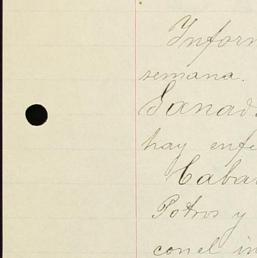 Inform
semana.
Ganad
hay enfe
Cabal
Potros y
con el in